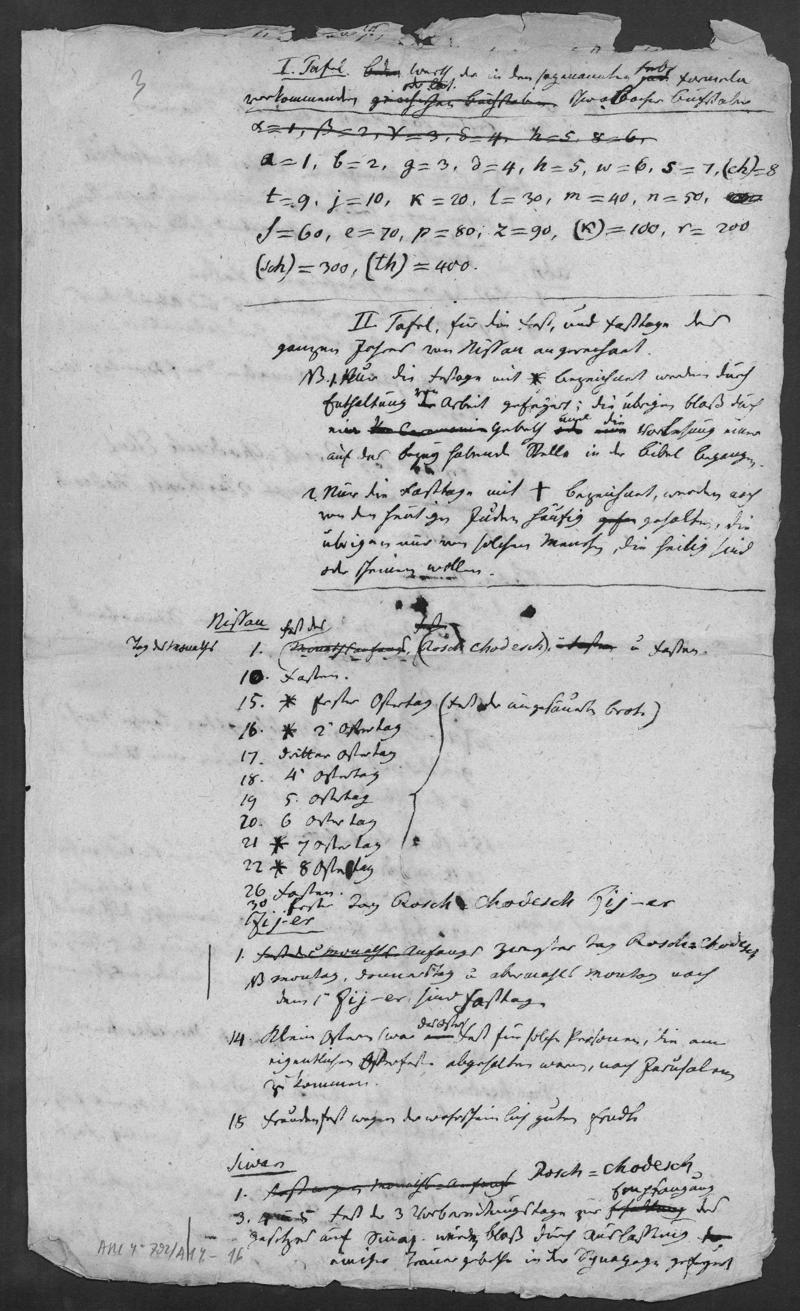 3
I. Tafel. Werth der in den sogenannten Formeln
vorkommenden griechischen Buchstaben Buchstaben
α=1, β=2, γ=3, δ=4, h=5, 8=6,
a=1, b=2, g=3, d=4, h=5, w=6, s=7, (ch)=8
t=9, j=10, k=20, l=30, m=40, n=50,
ſ=60, e=70, p=80, z=90, (K)=100, r=200
(sch)=300, (th)=400.
II. Tafel, für die Fest- und Fasttage des
ganzen Jahres von Nissan angerechnet.
NB. 1. Nur die Festage mit * bezeichnet werden durch
Enthaltung von Arbeit gefeyert; die übrigen bloß durch
Ceremonie Gebeth und die Vorlesung einer
auf das bezug habende Stelle in der Bibel begangen.
2. Nur die Fasttage mit † bezeichnet, werden noch
von den heutigen Juden häufig gehalten, die
übrigen nur von solchen Menschen, die heilig sind
oder scheinen wollen.
Nissan
Fest des
Tag des Monaths 1. (Monathsanfangs, (Rosch chodesch). u Fasten.
10. Fasten.
15. * Erster Ostertag (Fest der ungesäuerten Brote)
16. * 2 Ostertag
17. dritter Ostertag
18. 4 Ostertag
19 5. Ostertag
20. 6 Ostertag
21 * 7 Ostertag
22 * 8 Ostertag
26 Fasten.
30 Erster Tag Rosch chodesch Jij-er
Jij-er
1. Fest des Monaths Anfangs zweyter Tag Rosch=Chodesch
NB Montag, Donnerstag u abermahls Montag nach
dem 1 Jij-er, sind Fasttage
14. Klein Ostern (war das Oster Fest für solche Personen, die am
eigentlichen Osterfeste abgehalten waren, nach Jerusalem
zu kommen.
18 Freudenfest wegen der wahrscheinlich guten Erndte
Siwan
1. Fest wegen Monaths=anfangs Rosch=chodesch
3. 4 u 5 Fest der 3 Vorbereitungstage zur Empfangung des
Gesetzes auf Sinai. werden bloß durch Auslassung
einiger Trauergebethe in der Synagoge gefeyert